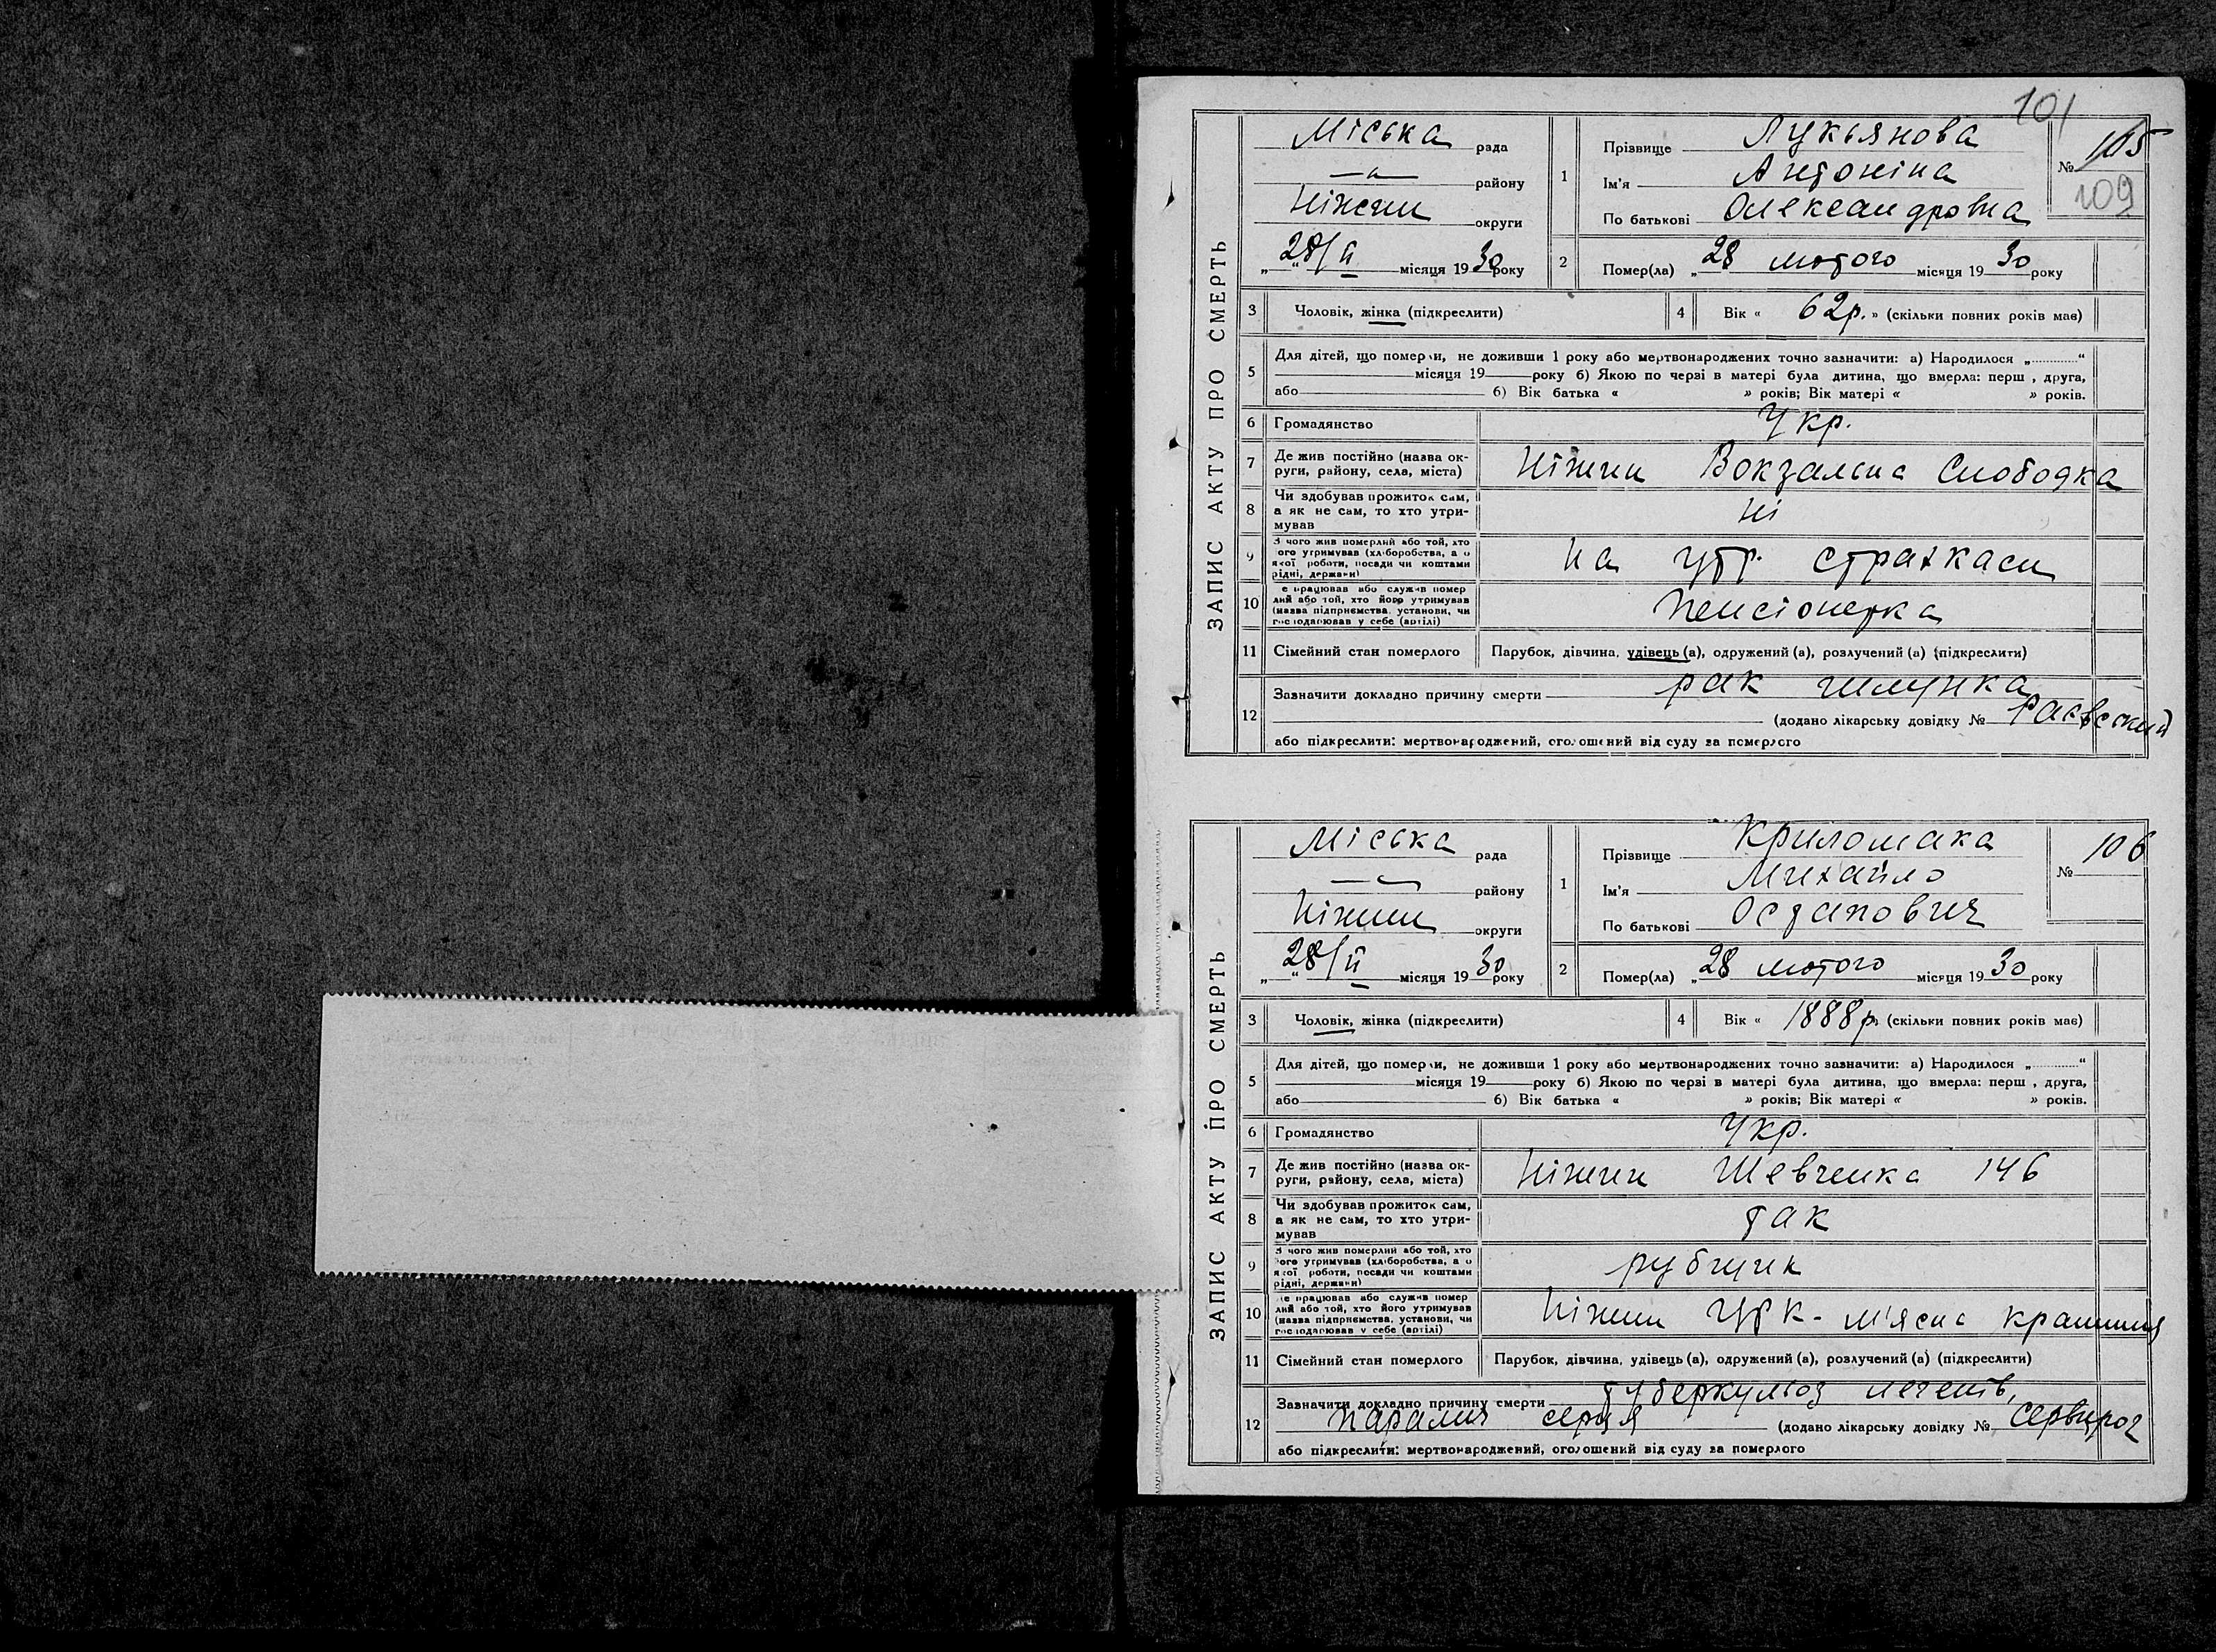 101
ЗАПИС АКТУ ПРО СМЕРТЬ
Міська рада
району
Ніжин округи
„ “ 28/II місяця 1930 року
1
Прізвище Лукьянова
Ім'я Антоніна
По батькові Олександровна
№ 105
109
2 Помер(ла) „28 лютого місяця 1930 року
3 Чоловік, жінка (підкреслити)
4 Вік « 62р. » (скільки повних років мав)
5 Для дітей, що померли, не доживши 1 року або мертвонароджених точно зазначити: а) Народилося „ “
місяця 19 року б) Якою по черзі в матері була дитина, що вмерла: перш , друга,
або б) Вік батька « » років; Вік матері « » років.
6 Громадянство Укр.
7 Де жив постійно (назва ок-
руги, району, села, міста) Ніжин Вокзальна Слободка
8 Чи здобував прожиток сам,
а як не сам, то хто утри-
мував ні
9 З чого жив померлий або той, хто
ого утримував (хліборобства, а о
якої роботи, посади чи коштами
рідні, держави) на утр. страхкаси
10 е працював або служив помер
лий або той, хто його утримував
(назва підприємства, установи, чи
господарював у себе (артілі) пенсіонерка
11 Сімейний стан померлого Парубок, дівчина, удівець (а), одружений (а), розлучений (а) (підкреслити)
12 Зазначити докладно причину смерти рак шлунка
(додано лікарську довідку № Раєвский
або підкреслити: мертвонароджений, оголошений від суду за померлого
ЗАПИС АКТУ ПРО СМЕРТЬ
Міська рада
району
Ніжин округи
„ “ 28/II місяця 1930 року
1
Прізвище Криломака
Ім'я Михайло
По батькові Остапович
№ 106
2 Помер(ла) „28 лютого місяця 1930 року
3 Чоловік, жінка (підкреслити)
4 Вік « 1888р. (скільки повних років мав)
5 Для дітей, що померли, не доживши 1 року або мертвонароджених точно зазначити: а) Народилося „ “
місяця 19 року б) Якою по черзі в матері була дитина, що вмерла: перш , друга,
або б) Вік батька « » років; Вік матері « » років.
6 Громадянство Укр.
7 Де жив постійно (назва ок-
руги, району, села, міста) Ніжин Шевченка 146
8 Чи здобував прожиток сам,
а як не сам, то хто утри-
мував так
9 З чого жив померлий або той, хто
ого утримував (хліборобства, а о
якої роботи, посади чи коштами
рідні, держави) рубщик
10 е працював або служив помер
лий або той, хто його утримував
(назва підприємства, установи, чи
господарював у себе (артілі) Ніжин ЦРК - м'ясна крамниця
11 Сімейний стан померлого Парубок, дівчина, удівець (а), одружений (а), розлучений (а) (підкреслити)
12 Зазначити докладно причину смерти туберкульоз легенів,
параліч серця (додано лікарську довідку №
або підкреслити: мертвонароджений, оголошений від суду за померлого